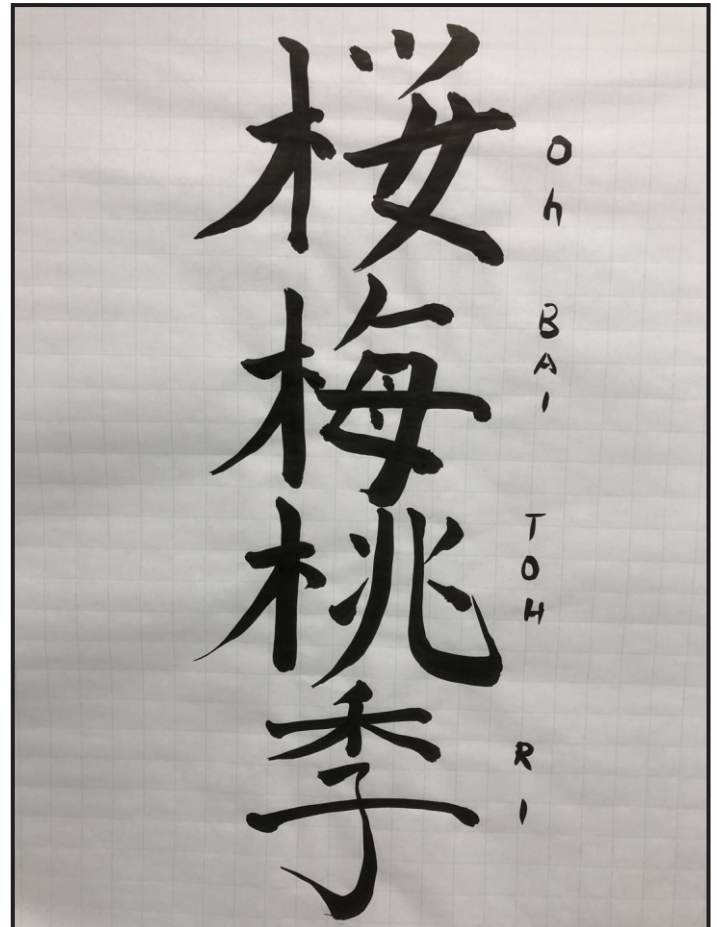 桜梅桃季
Oh BAI TOH RI